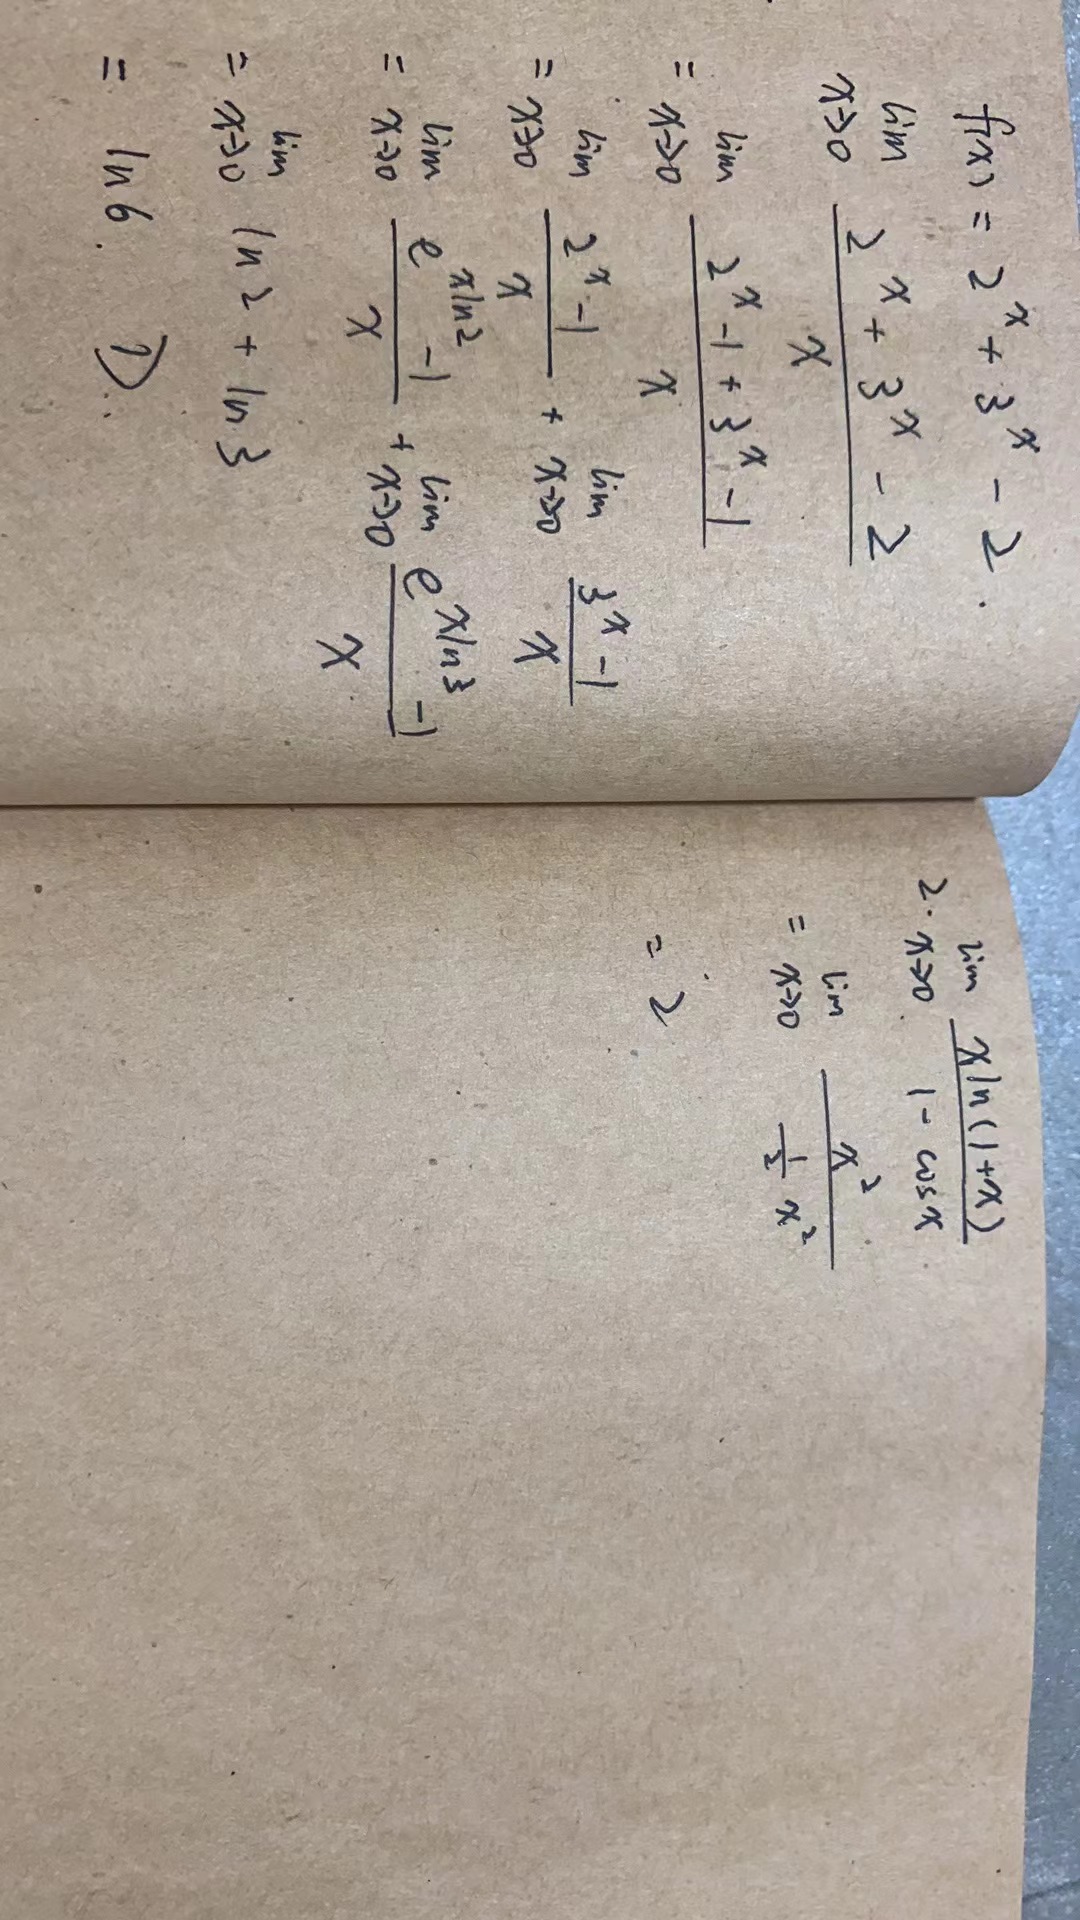 f(x) = 2^x + 3^x - 2.
lim x→0 (2^x + 3^x - 2)/x
= lim x→0 (2^x - 1 + 3^x - 1)/x
= lim x→0 (2^x - 1)/x + lim x→0 (3^x - 1)/x
= lim x→0 (e^(xln2) - 1)/x + lim x→0 (e^(xln3) - 1)/x
= lim x→0 ln2 + ln3
= ln6. D.
2. lim x→0 (xln(1+x))/(1 - cosx)
= lim x→0 x^2/(1/2 x^2)
= 2